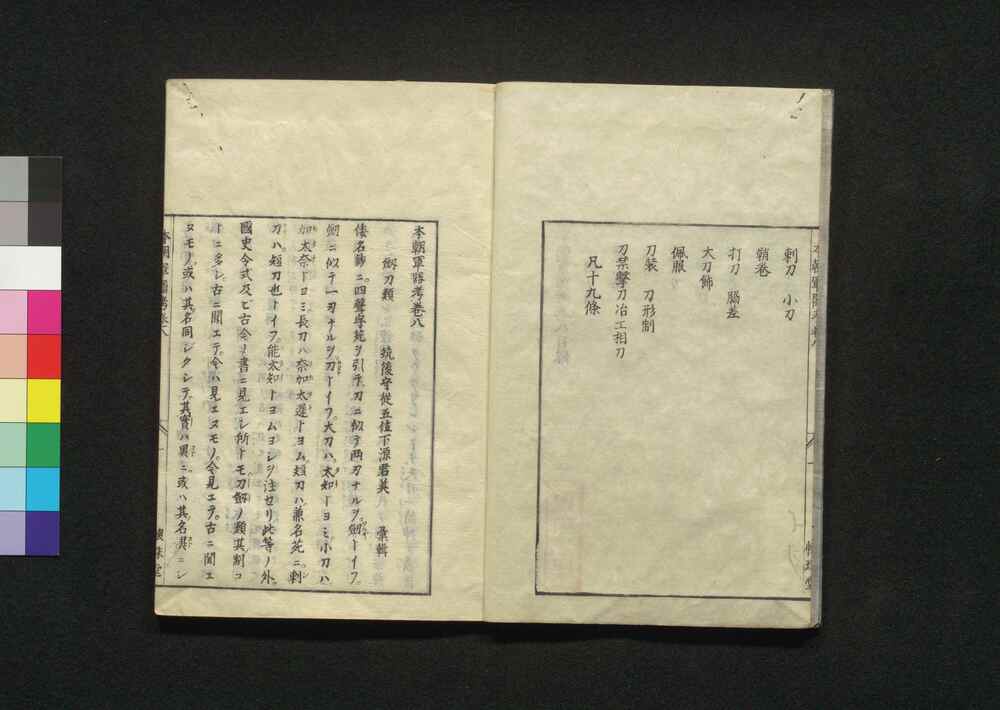 刺刀　小刀
鞘巻
打刀　脇差
大刀飾
佩服
刀装　刀形制
刀禁撃刀冶工相刀
凡十九條
本朝軍器考巻八
劔刀類　筑後守従五位下源君美　彙輯
倭名鈔ニ四聲字苑ヲ引テ刀ニ似テ両刄ナルヲ劔トイフ
劔ニ似テ一刄ナルヲ刀トイフ大刀ハ太知トヨミ小刀ハ
加太奈トヨミ長刀ハ奈加太遅トヨム短刀ハ兼名苑ニ刺
刀ハ短刀也トイフ能太知トヨムヨシヲ注セリ此等ノ外
國史令式及ビ古今ノ書ニ見エシ所トモ刀劔ノ類其制コ
トニ名シ古ニ聞エテ今ハ見エヌモノ今見エテ古ニ聞エ
ヌモノ或ハ其名同シクシテ其實ハ異ニ或ハ其名異ニシ